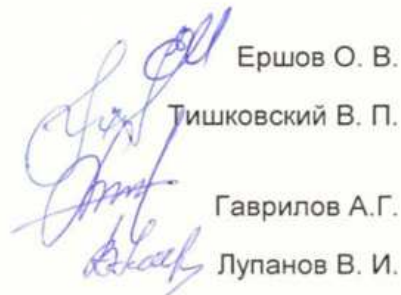 Ершов О. В.
Тишковский В. П.
Гаврилов А.Г.
Лупанов В. И.